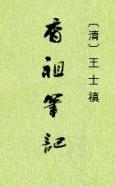 〔清〕王士禛
香祖筆記